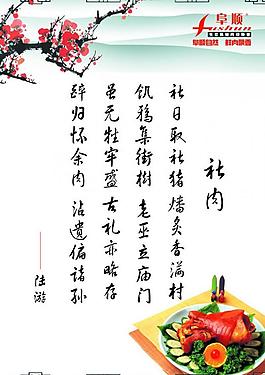 阜顺
fushun
社肉
社日取社猪 燔炙香满村
饥鸦集街樹 老巫立庙门
虽无牲牢盛 古礼亦略存
醉归怀余肉 沾遗偏诸孙
——陆游